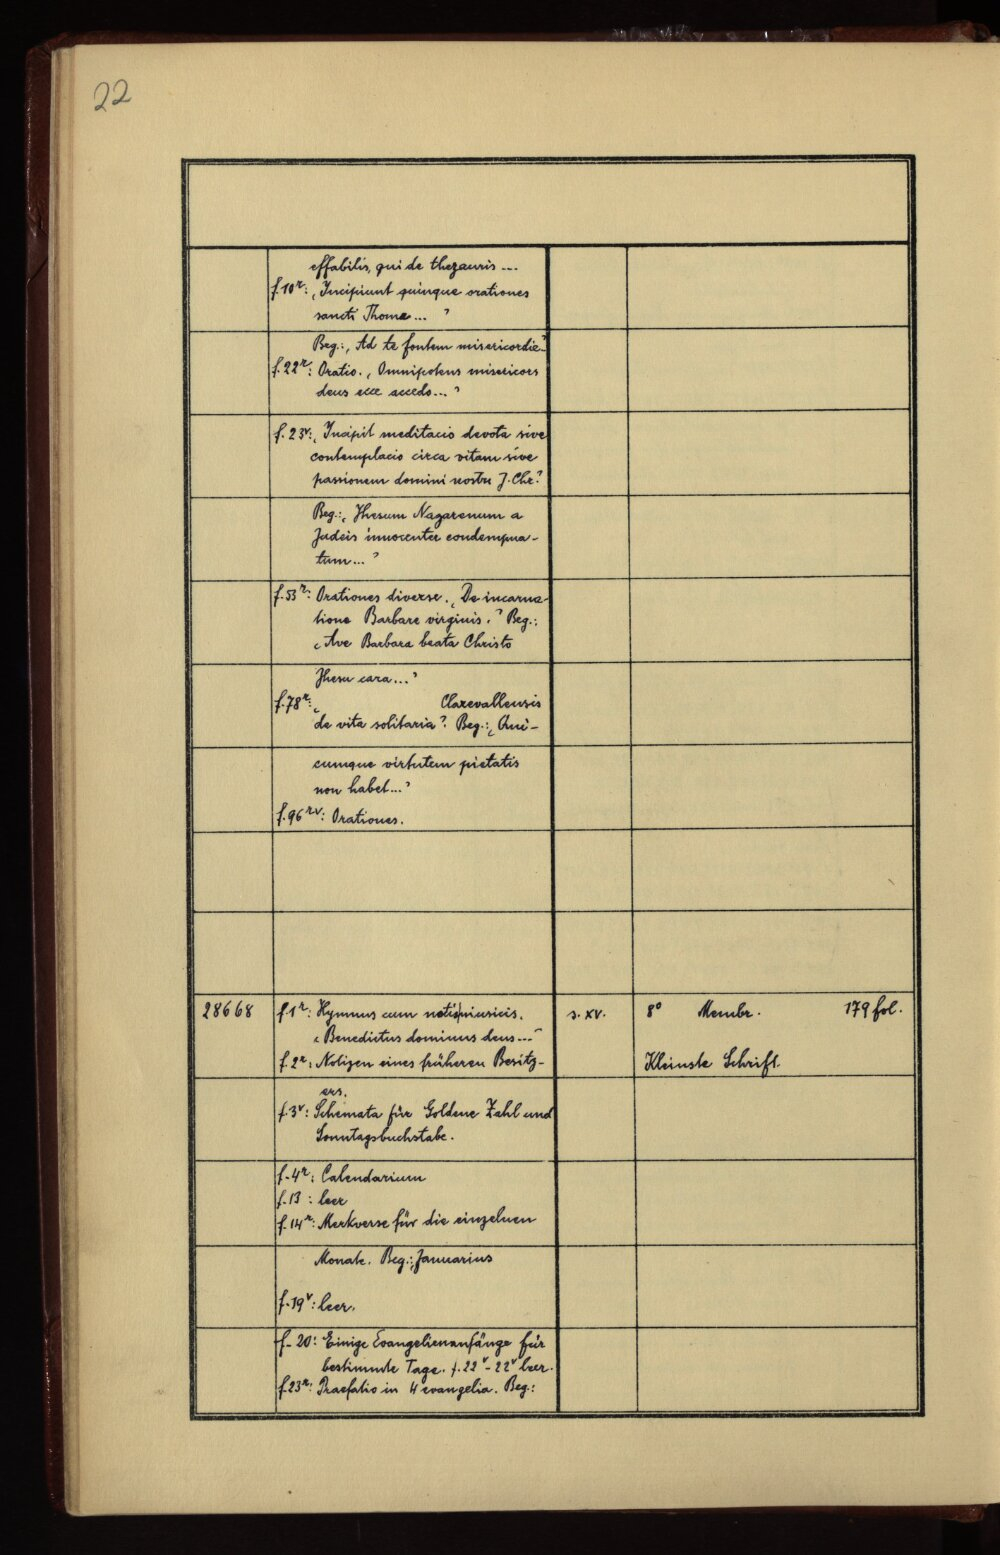 22
effabilis, qui de thezauris ...
f. 10r: „Incipiunt quinque orationes
sancti Thome ... “
Beg.: „Ad te fontem misericordie“
f. 22r: Oratio. „Omnipotens misericors
deus ecce accedo ... “
f. 23v: „Incipit meditacio devota sive
contemplacio circa vitam sive
passionem domini nostri J. Chr.“
Beg.: „Jhesum Nazarenum a
Judeis innocenter condempna-
tum ... “
f. 53r: Orationes diverse. „De incarna-
tione Barbare virginis.“ Beg.:
„Ave Barbara beata Christo
Jhesu cara ... “
f. 78r: „ Clarevallensis
de vita solitaria“. Beg.: „Qui-
cumque virtutem pietatis
non habet ... “
f. 96rv: Orationes.
28668 f. 1r: Hymnus cum notis musicis. s. XV. 8° Membr. 179 fol.
„Benedictus dominus deus ... “
f. 2r: Notizen eines früheren Besitz- Kleinste Schrift.
ers.
f. 3v: Schemata für Goldene Zahl und
Sonntagsbuchstabe.
f. 4r: Calendarium
f. 13: leer
f. 14r: Merkverse für die einzelnen
Monate. Beg.: „Januarius
f. 19v: leer.
f. 20: Einige Evangelienanfänge für
bestimmte Tage. f. 22v - 22v leer.
f. 23r: Praefatio in 4 evangelia. Beg.: